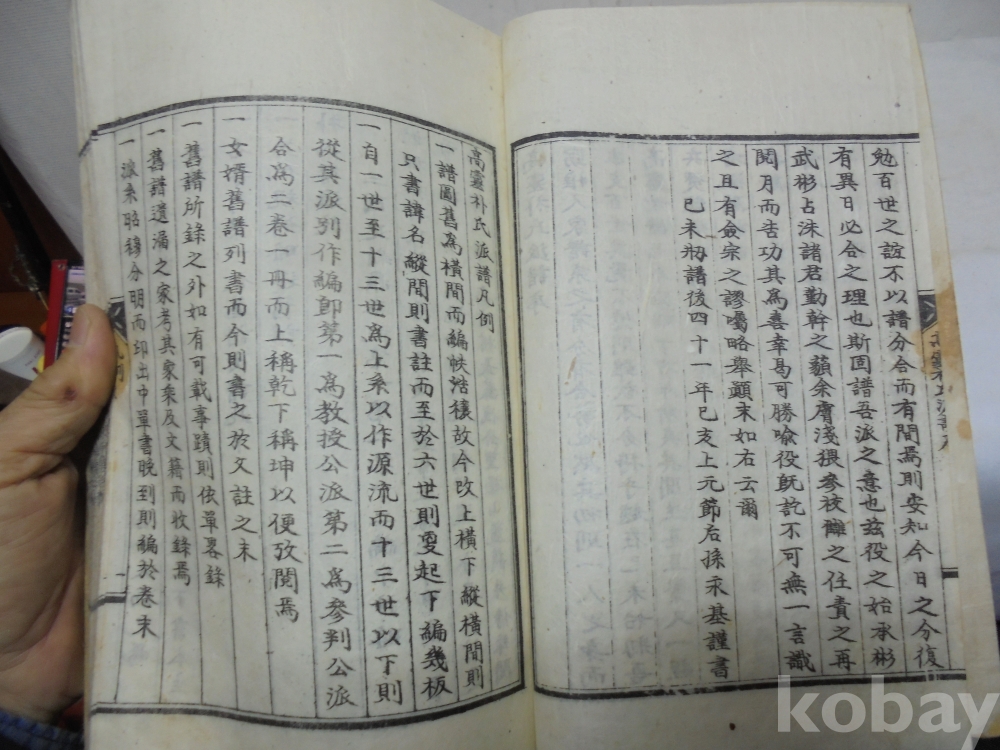 勉百世之誼不以譜分合而有間焉則安知今日之分復
有異日必合之理也斯固譜吾派之意也玆役之始承彬
武彬占洙諸君勤幹之藐余膚淺猥參校讎之任責之再
閱月而告功其爲喜幸曷可勝喩役旣訖不可無一言識
之且有僉宗之謬囑略舉顚末如右云爾
己未刱譜後四十一年己亥上元節后孫永基謹書
高靈朴氏派譜凡例
一譜圖舊爲橫間而編帙浩穰故今改上橫下縱橫間則
只書諱名縱間則書註而至於六世則更起下編幾板
一自一世至十三世爲上系以作源流而十三世以下則
從其派別作編卽第一爲教授公派第二爲參判公派
合爲二卷一冊而上稱乾下稱坤以便攷閱焉
一女婿舊譜列書而今則書之於父註之末
一舊譜所錄之外如有可載事蹟則依單畧錄
一舊譜遺漏之家考其家乘及文籍而收錄焉
一派系昭穆分明而印出中單書晚到則編於卷末
kobay